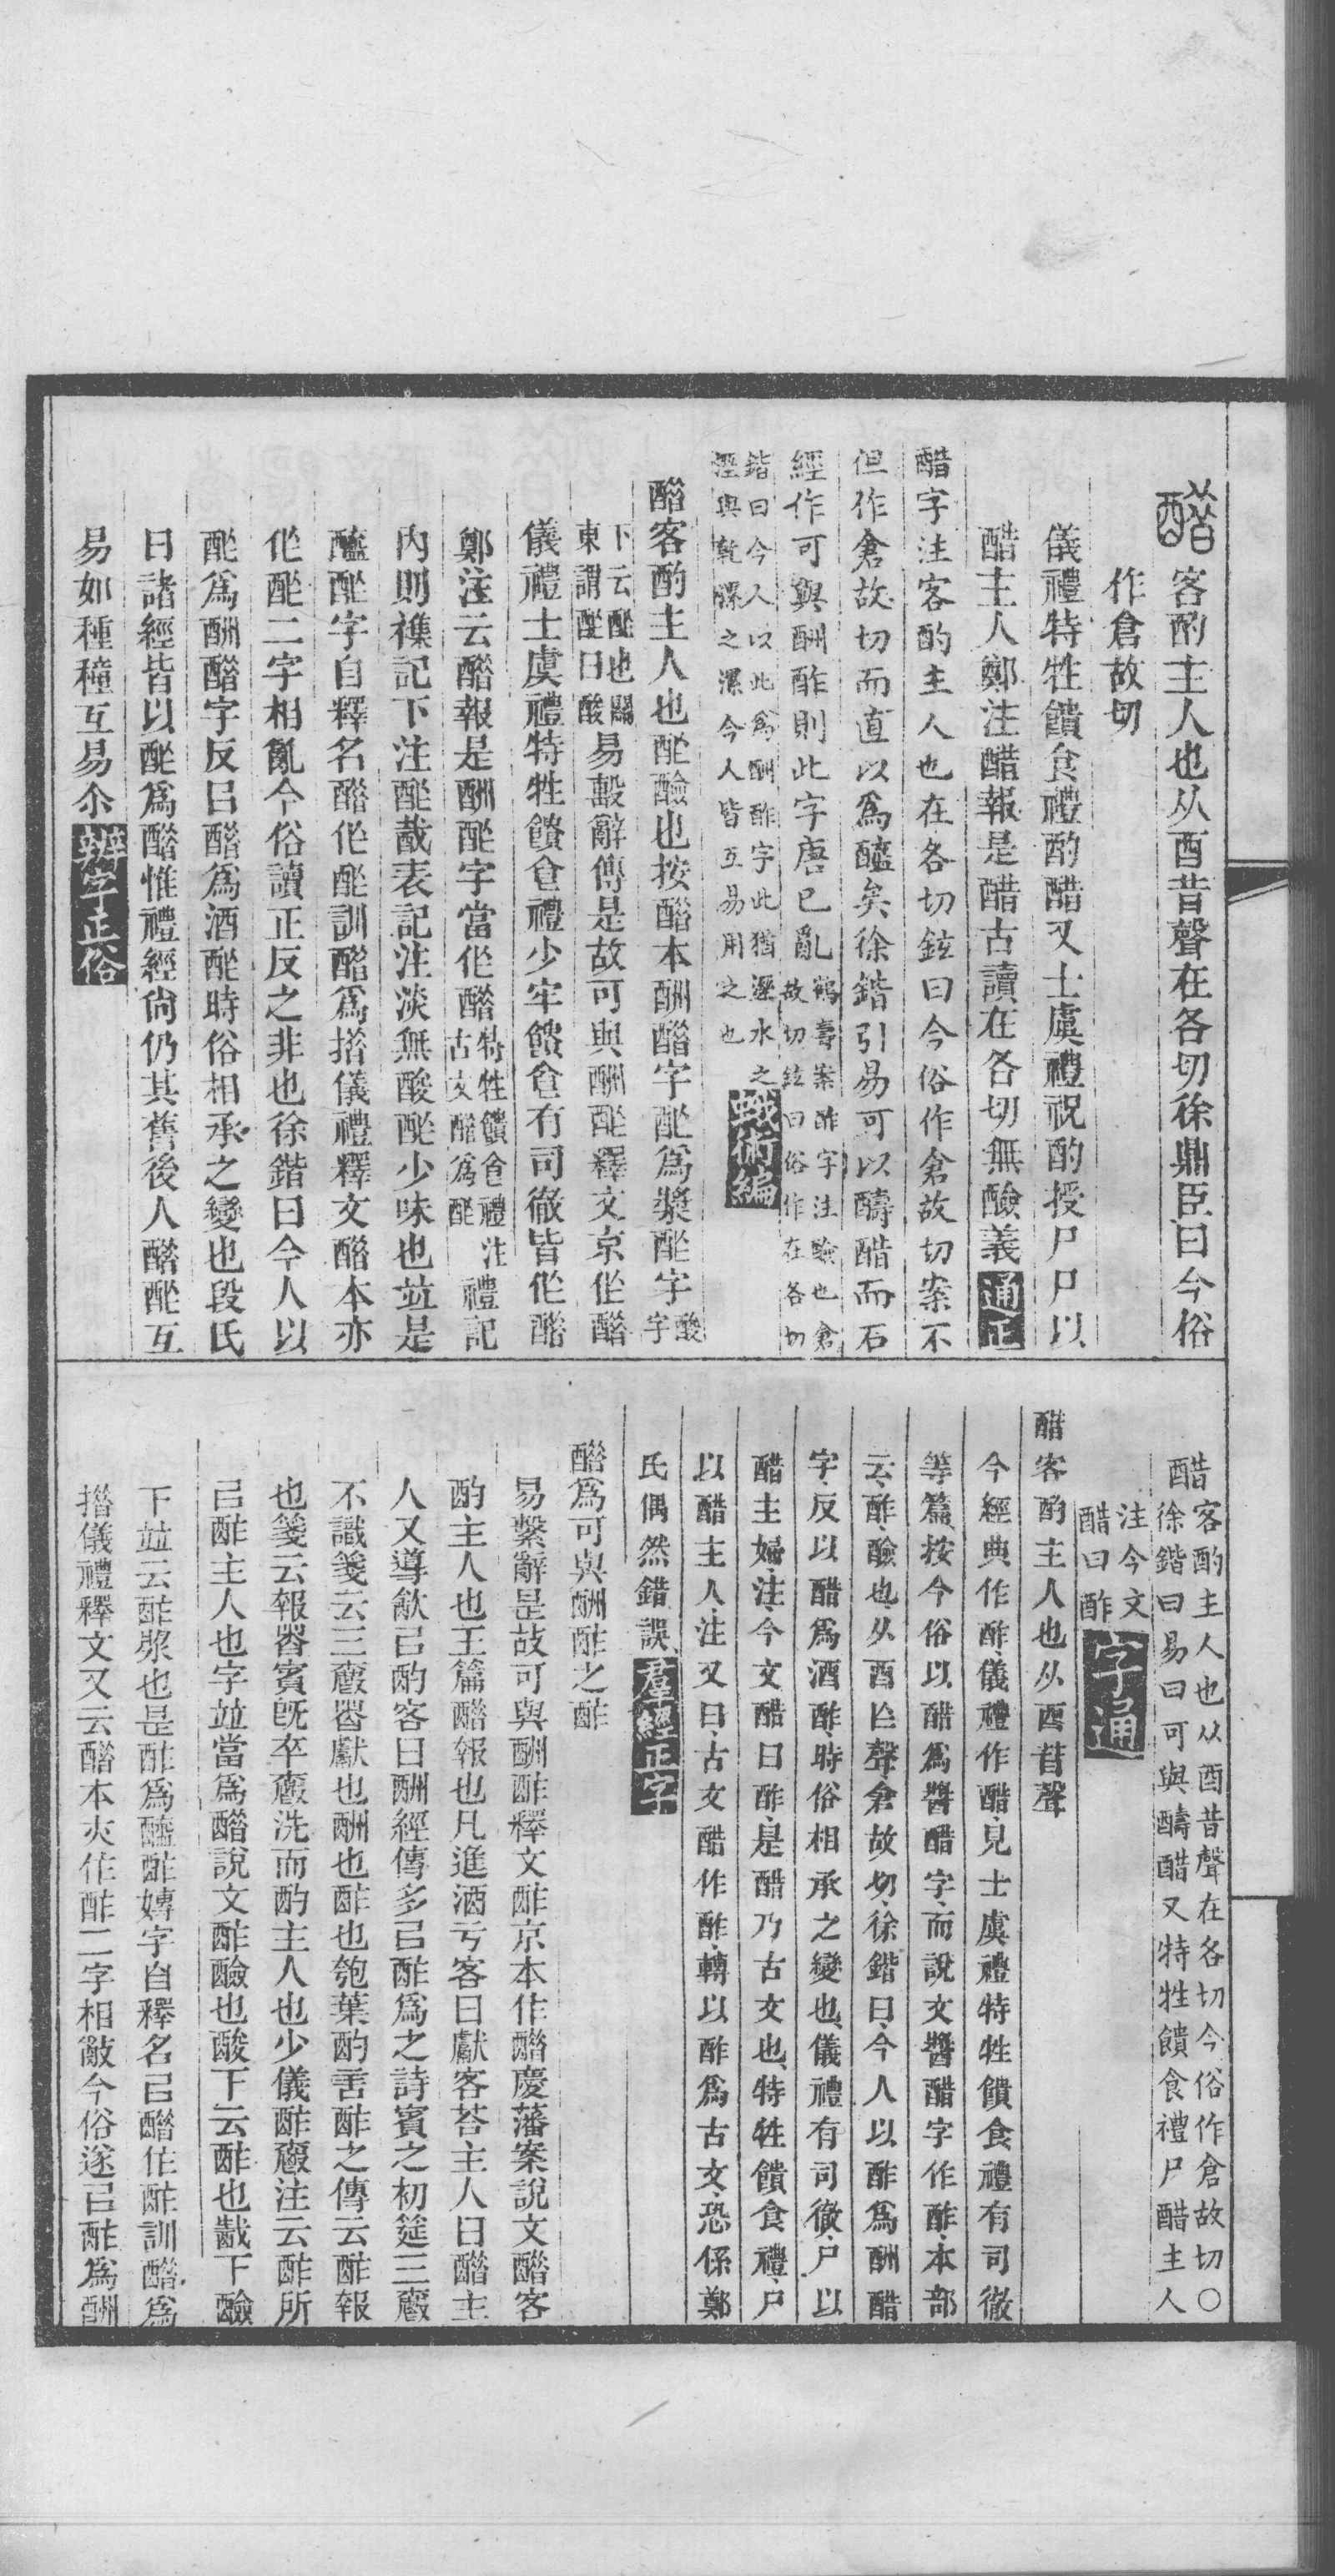 醋客酌主人也从酉昔聲在各切徐鼎臣曰今俗
作倉故切
儀禮特牲饋食禮酌醋又士虞禮祝酌授尸尸以
醋主人鄭注醋報是醋古讀在各切無醶義通正
醋字注客酌主人也在各切鉉曰今俗作倉故切案不
但作倉故切而直以爲醯矣徐鍇引易可以醻醋而石
經作可與酬酢則此字唐已亂鶴壽案酢字注醶也倉
故切鉉曰俗作在各切
鍇曰今人以此爲酬酢字此猶溼水之
溼與乾漯之漯今人皆互易用之也蛾術編
醋客酌主人也酢醶也按醋本酬醋字酢爲漿酢字酸
字
下云酢也關
東謂酢曰酸易毄辭傳是故可與酬酢釋文京作醋
儀禮士虞禮特牲饋食禮少牢饋食有司徹皆作醋
鄭注云醋報是酬酢字當作醋特牲饋食禮注
古文醋爲酢禮記
內則襍記下注酢酨表記注淡無酸酢少味也竝是
醯酢字自釋名醋作酢訓醋爲措儀禮釋文醋本亦
作酢二字相亂今俗讀正反之非也徐鍇曰今人以
酢爲酬醋字反㠯醋爲酒酢時俗相承之變也段氏
曰諸經皆以酢爲醋惟禮經尙仍其舊後人醋酢互
易如種穜互易尒辨字正俗
醋客酌主人也从酉昔聲在各切今俗作倉故切〇
徐鍇曰易曰可與醻醋又特牲饋食禮尸醋主人
注今文
醋曰酢字通
醋客酌主人也从酉㫺聲
今經典作酢、儀禮作醋、見士虞禮特牲饋食禮有司徹
等篇、按今俗以醋爲醬醋字、而說文醬醋字作酢、本部
云、酢、醶也、从酉乍聲、倉故切、徐鍇曰、今人以酢爲酬醋
字、反以醋爲酒酢、時俗相承之變也、儀禮有司徹、尸以
醋主婦、注、今文醋曰酢、是醋乃古文也、特牲饋食禮、尸
以醋主人、注又曰、古文醋作酢、轉以酢爲古文、恐係鄭
氏偶然錯誤、羣經正字
醋爲可與酬酢之酢
易繫辭是故可與酬酢釋文酢京本作醋慶藩案說文醋客
酌主人也玉篇醋報也凡進酒亏客曰獻客荅主人曰醋主
人又導歙㠯酌客曰酬經傳多㠯酢爲之詩賓之初筵三爵
不識箋云三爵者獻也酬也酢也匏葉酌言酢之傳云酢報
也箋云報者賓旣卒爵洗而酌主人也少儀酢爵注云酢所
㠯酢主人也字竝當爲醋說文酢醶也酸下云酢也酨下醶
下竝云酢漿也是酢爲醯酢嫥字自釋名㠯醋作酢訓醋爲
措儀禮釋文又云醋本夾作酢二字相殽今俗遂㠯酢爲酬